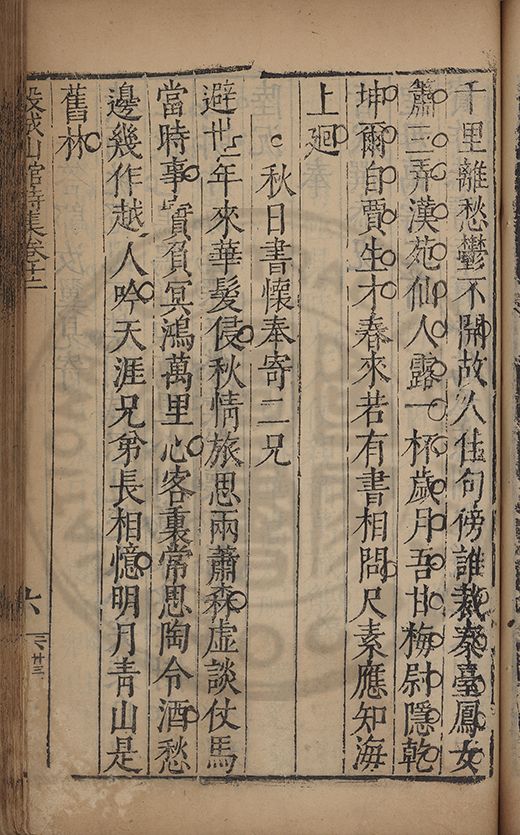 千里離愁鬱不開故人佳句傍誰裁秦臺鳳女
簫三弄漢苑仙人露一杯歲月吾甘梅尉隱乾
坤爾自賈生才春來若有書相問尺素應知海
上廻
秋日書懷奉寄二兄
避世年來華髮侵秋情旅思兩蕭森虛談仗馬
當時事實負冥鴻萬里心客裏常思陶令酒愁
邊幾作越人吟天涯兄弟長相憶明月青山是
舊林
穀城山館詩集卷十二
六
廿三